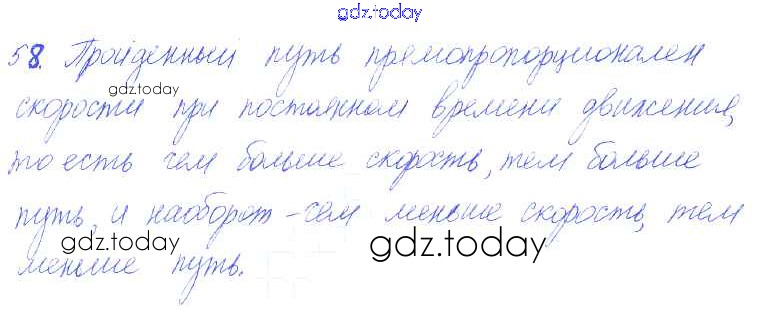 gdz.today
58. Пройденный путь прямопропорционален
gdz.today
скорости при постоянном времени движения,
то есть чем больше скорость, тем больше
путь, и наоборот - чем меньше скорость, тем
gdz.today
gdz.today
меньше путь.